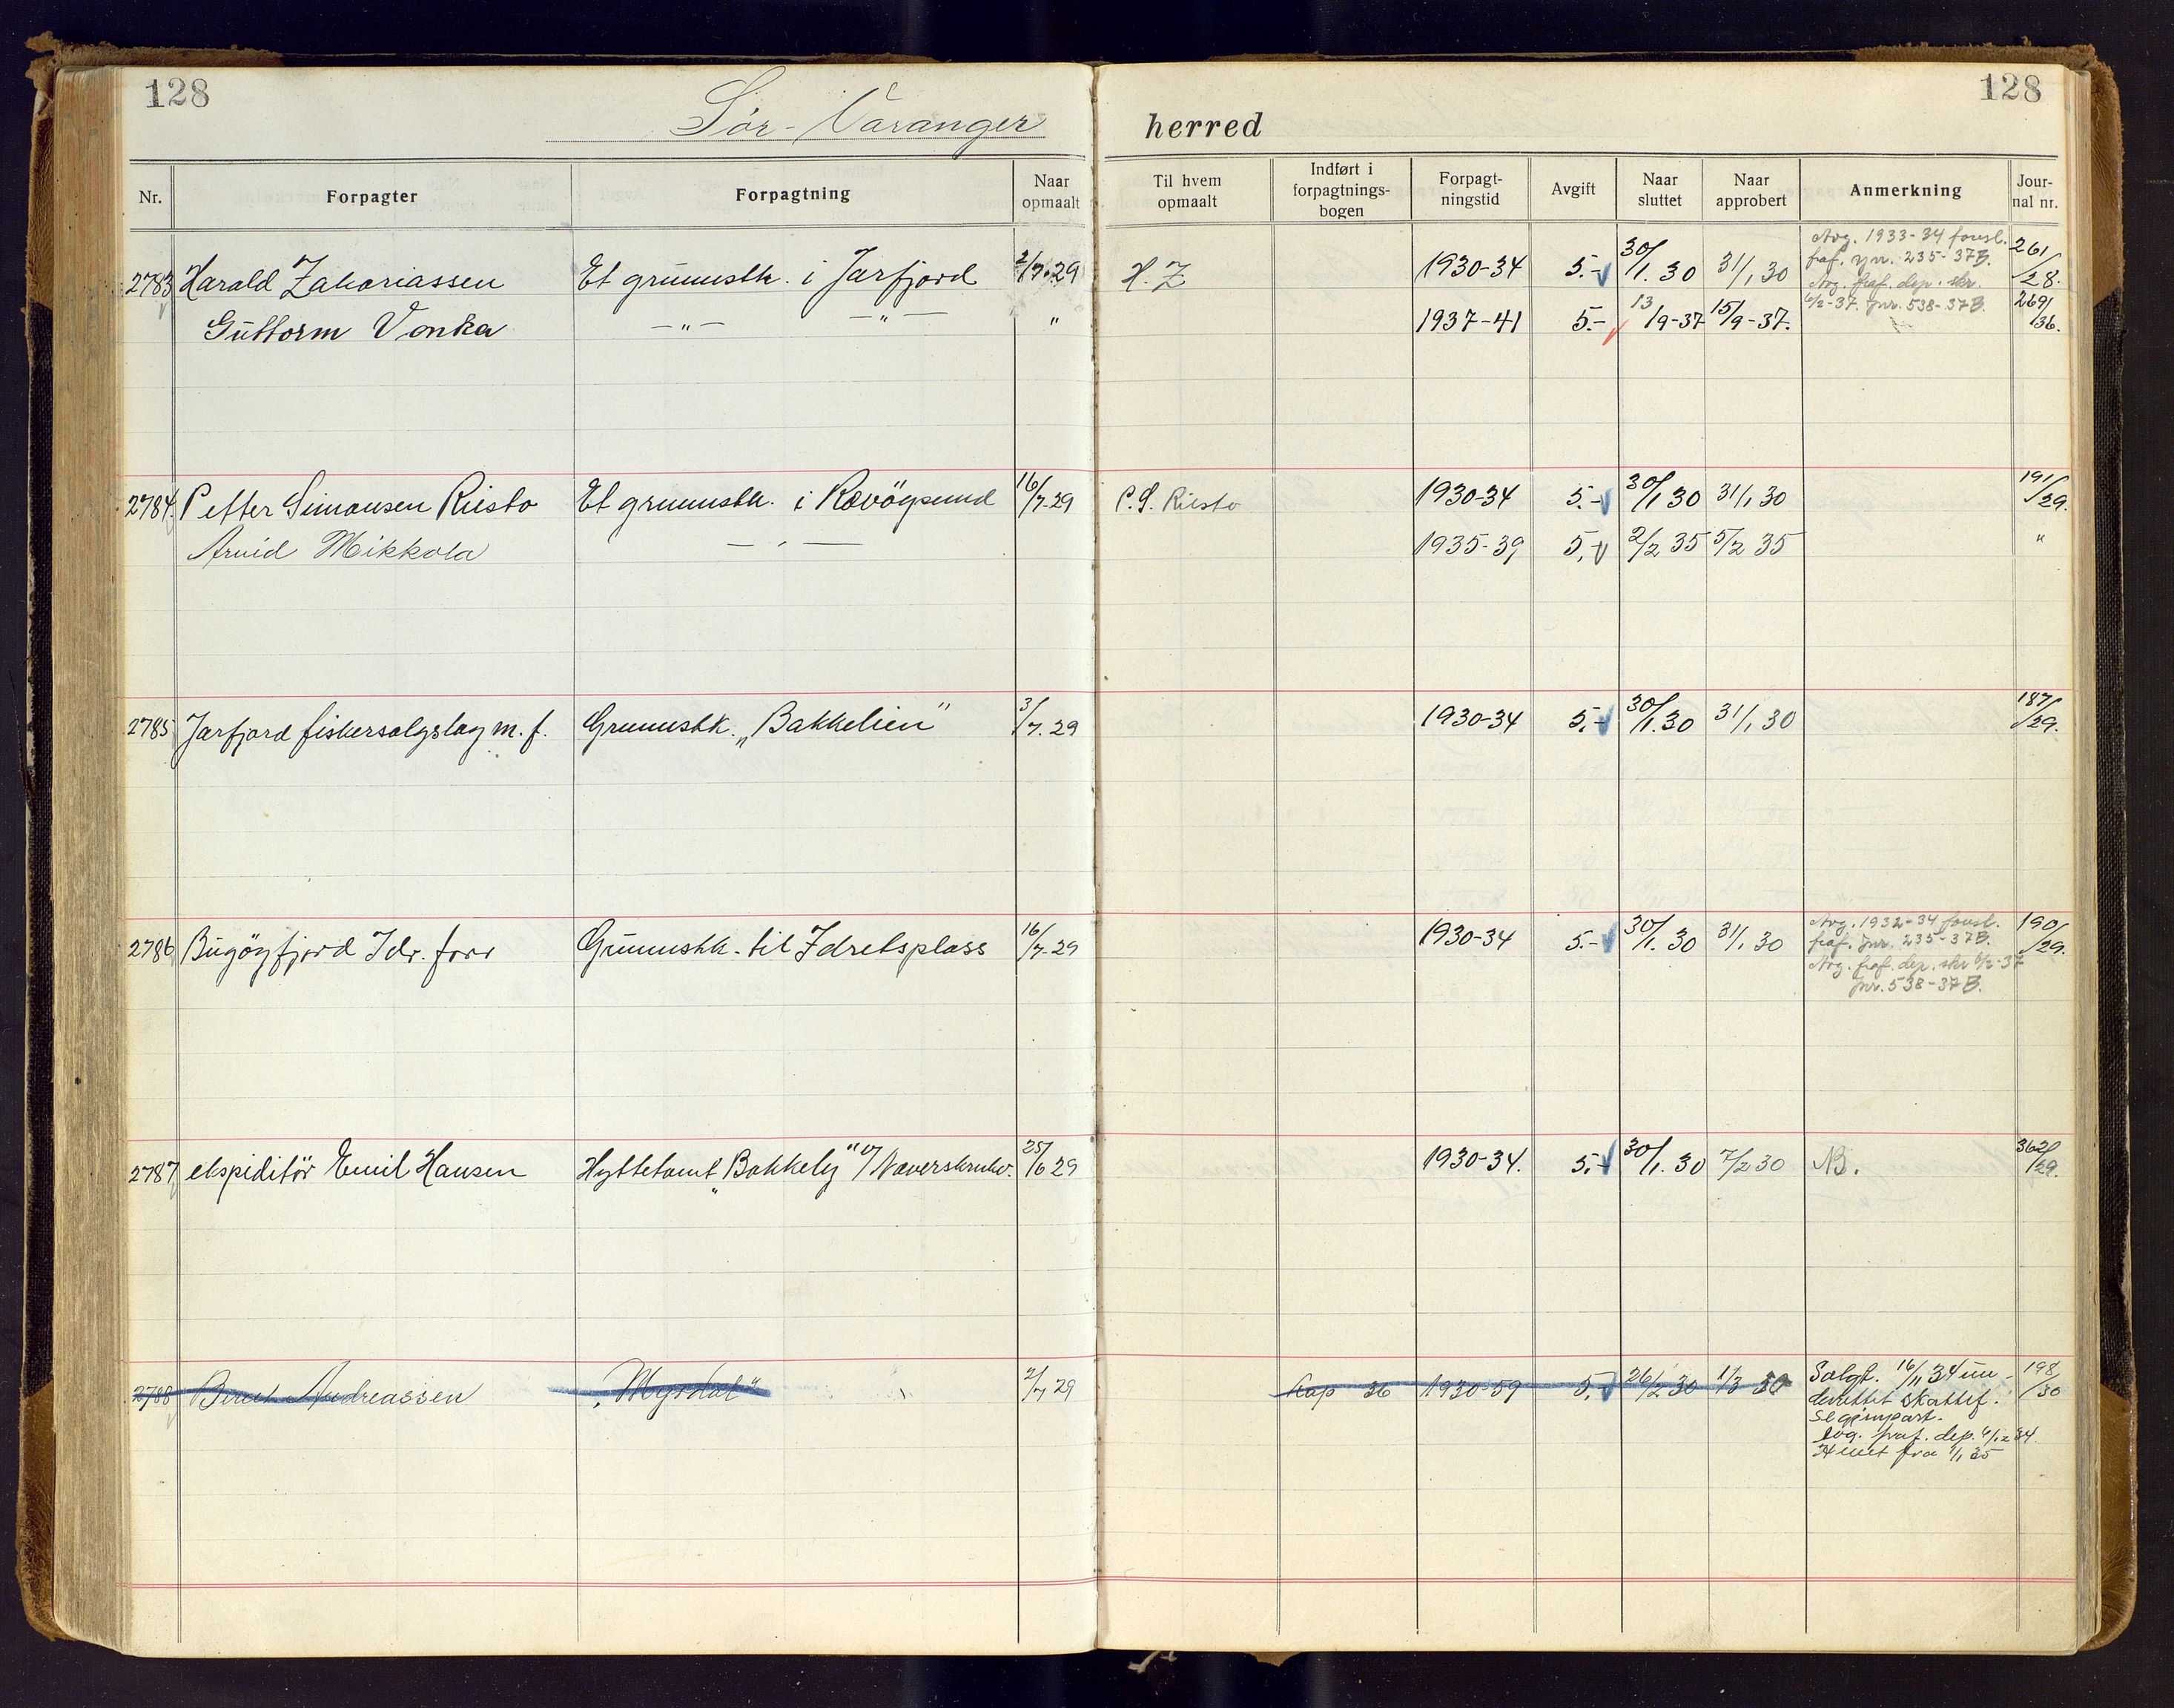 128
128
Sör-Varanger herred
Nr. Forpagter Forpagtning Naar opmaalt Til hvem opmaalt Indført i forpagtnings-bogen Forpagt-ningstid Avgift Naar sluttet Naar approbert Anmerkning Jour-nal nr.
2783 Harald Zakariassen Et grunnstk. i Jarfjord 2/7.29 H. Z 1930-34 5.- 30/1. 30 31/1 30 261/28.
Avg. 1933-34 foresl.
fraf. jnr. 235-37B.
Avg. fraf. dep. skr.
6/2-37. jnr. 538-37B.
Guttorm Vonka -"- -"- " 1937-41 5.- 13/9-37 15/9-37. 2691/36.
2784. Petter Simonsen Riesto Et grunnstk. i Rævöysund 16/7-29 P. S. Riesto 1930-34 5.- 30/1 30 31/1 30 191/29.
Arvid Mikkola -"- 1935-39 5,- 2/2 35 5/2 35 "
2785 Jarfjord fiskersalgslag m. f. Grunnstk. „Bakkelien" 3/7.29 1930-34 5.- 30/1.30 31/1 30 187/29.
2786 Bugöyfjord Idr. forr Grunnstk. til Idretsplass 16/7-29 1930-34 5.- 30/1. 30 31/1 30 190/29.
Avg. 1932-34 foresl.
fraf. jnr. 235-37B.
Avg. fraf. dep. skr 6/2-37
jnr. 538-37B.
2787 ekspiditör Emil Hansen Hyttetomt „Bakkely" v/ Naverskrukv. 25/6 29 1930-34. 5.- 30/1. 30 7/2 30 NB. 362/29.
2788 Bernt Andreassen „Myrdal" 2/7 29 Kap 36 1930-59 5,- 26/2 30 1/3 30 198/30
Solgt. 16/11 34 un-
derettet skattef.
Avg. fraf. dep. 6/12 34.
fra 1/1 35